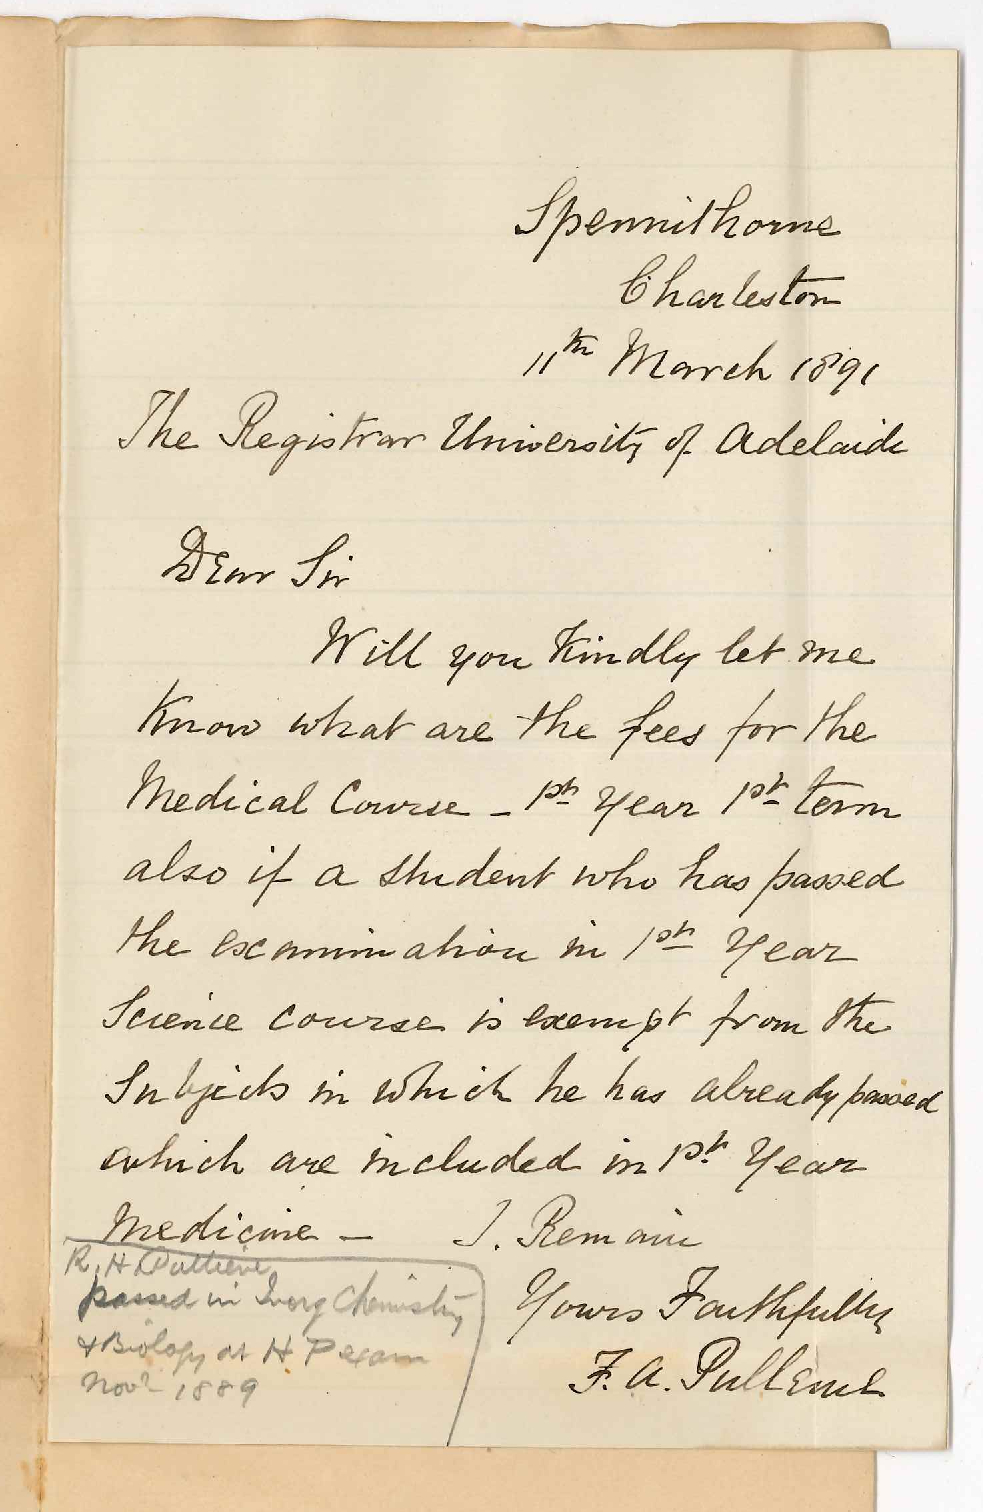 Spennithorne
Charleston
11th March 1891
The Registrar University of Adelaide
Dear Sir
Will you Kindly let me
Know what are the fees for the
Medical Course - 1st Year 1st term
also if a student who has passed
the examination in 1st Year
Science course is exempt from the
Subjects in which he has already passed
which are included in 1st Year
Medicine - I. Remain
Yours Faithfully
F. A. Pulleine
R. H. Pulleine
passed in Inorg Chemistry
& Biology at H P exam
Novr 1889